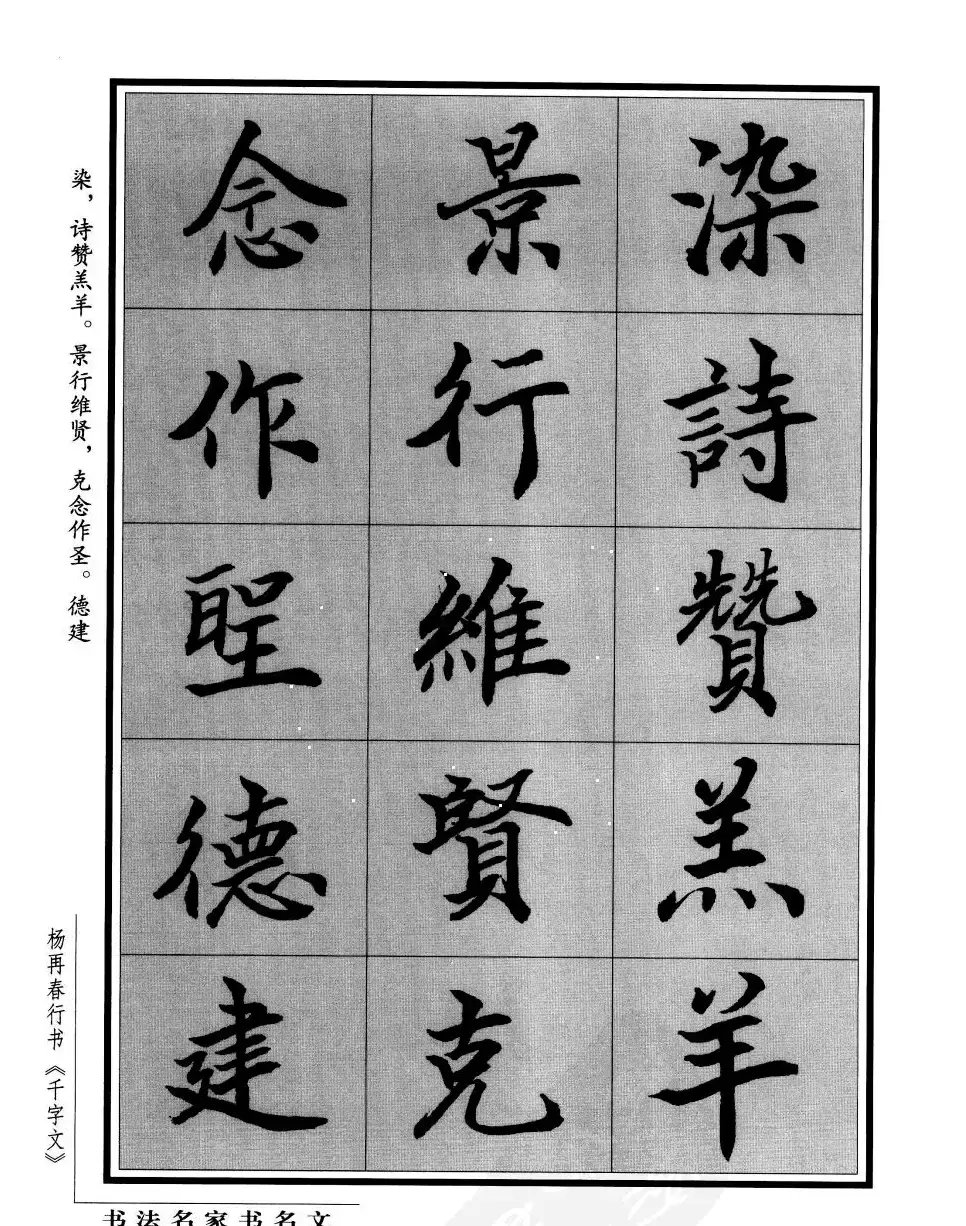 染詩贊羔羊
景行維賢克
念作聖德建
染，诗赞羔羊。景行维贤，克念作圣。德建
杨再春行书《千字文》
书法名家书名文